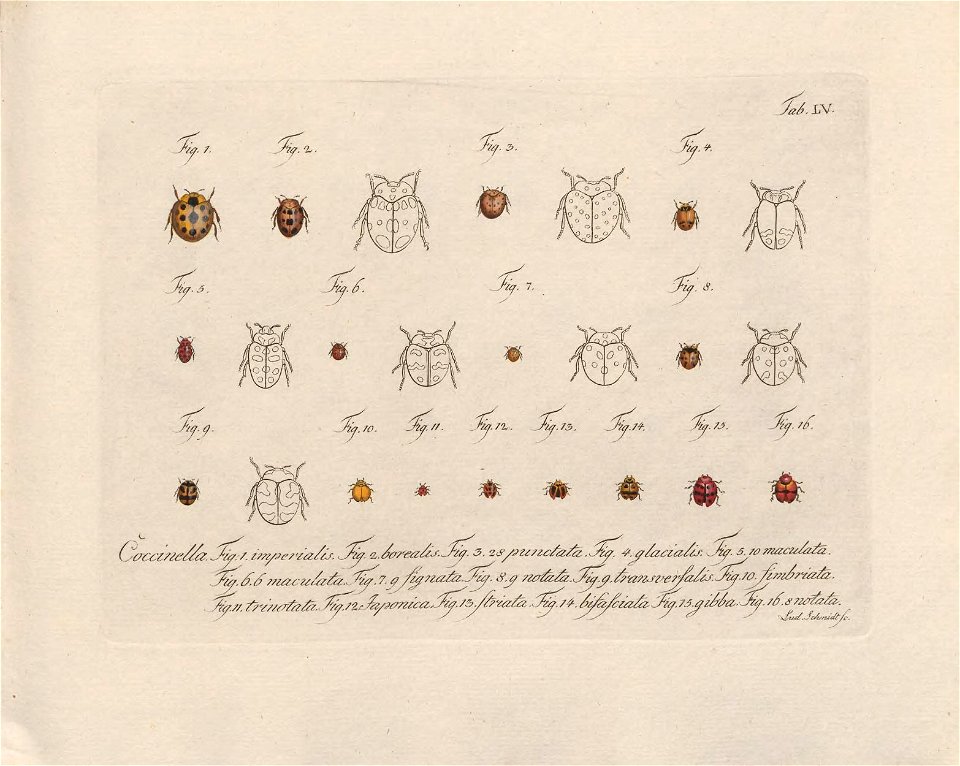 Tab. LV.
Fig. 1. Fig. 2. Fig. 3. Fig. 4.
Fig. 5. Fig. 6. Fig. 7. Fig. 8.
Fig. 9. Fig. 10. Fig. 11. Fig. 12. Fig. 13. Fig. 14. Fig. 15. Fig. 16.
Coccinella. Fig. 1. imperialis. Fig. 2. borealis. Fig. 3. 28 punctata. Fig. 4. glacialis. Fig. 5. 10 maculata.
Fig. 6. 6 maculata. Fig. 7. 9 ſignata. Fig. 8. 9 notata. Fig. 9. transverſalis. Fig. 10. fimbriata.
Fig. 11. trinotata. Fig. 12. Japonica. Fig. 13. ſtriata. Fig. 14. bifaſciata. Fig. 15. gibba. Fig. 16. 8 notata.
Lud. Schmidt ſc.